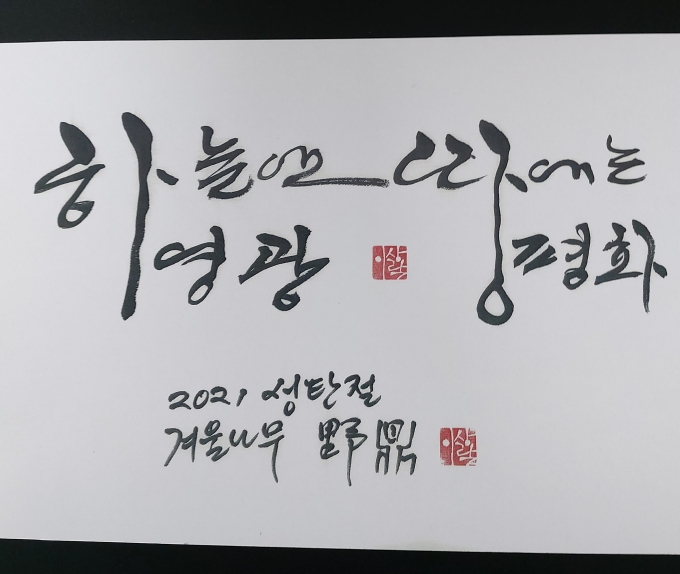 하늘엔 땅에는
영광 평화
2021 성탄절
겨울나무 野鼎